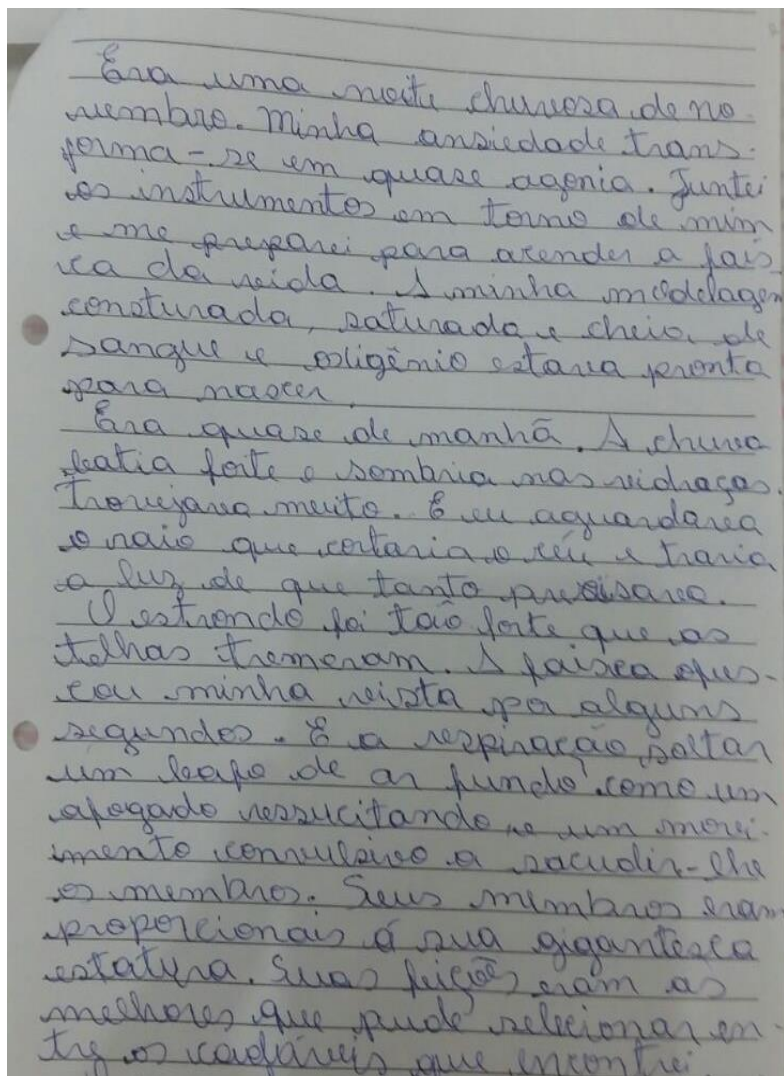 Era uma noite chuvosa de no-
vembro. Minha ansiedade trans-
forma-se em quase agonia. Juntei
os instrumentos em torno de mim
e me preparei para acender a faís
ca da vida. A minha modelagem
consturada, saturada e cheia de
sangue e oxigênio estava pronta
para nascer.
Era quase de manhã. A chuva
batia forte e sombria nas vidraças.
Trovejava muito. E eu aguardava
o raio que cortaria o céu e traria
a luz de que tanto precisava.
O estrondo foi tão forte que as
telhas tremeram. A faísca ofus-
cou minha vista por alguns
segundos. E a respiração soltar
um bafo de ar fundo como um
afogado ressucitando e um movi-
mento convulsivo a sacudir-lhe
os membros. Seus membros eram
proporcionais á sua gigantesca
estatura. Suas feições eram as
melhores que pude selecionar en
tre os cadáveis que encontrei.